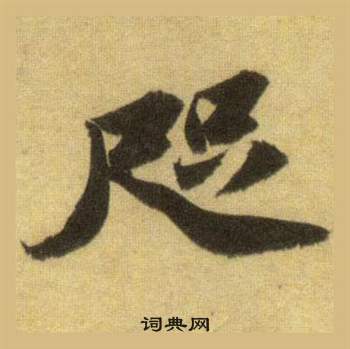 咫
词典网